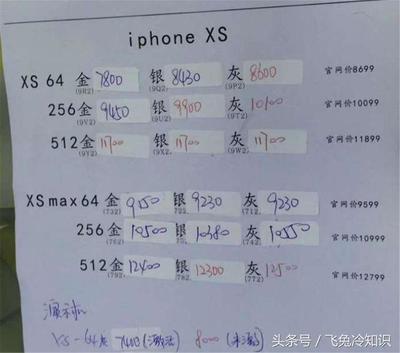 iphone XS
XS 64 金 7800 银 8430 灰 8600 官网价8699
(9R2) (9U2) (9P2)
256 金 9450 银 9900 灰 10100 官网价10099
(9V2) (9X2. (9T2)
512 金 11700 银 11700 灰 11700 官网价11899
(9Y2) (9X2. (9W2.
XSmax64 金 9150 银 9230 灰 9230 官网价9599
(732) (712.
256 金 10500 银 10380 灰 10550 官网价10999
(762) (742.
512 金 12400 银 12300 灰 官网价12799
792 782 (772)
XS-64 7400 8000
头条号 / 飞兔冷知识